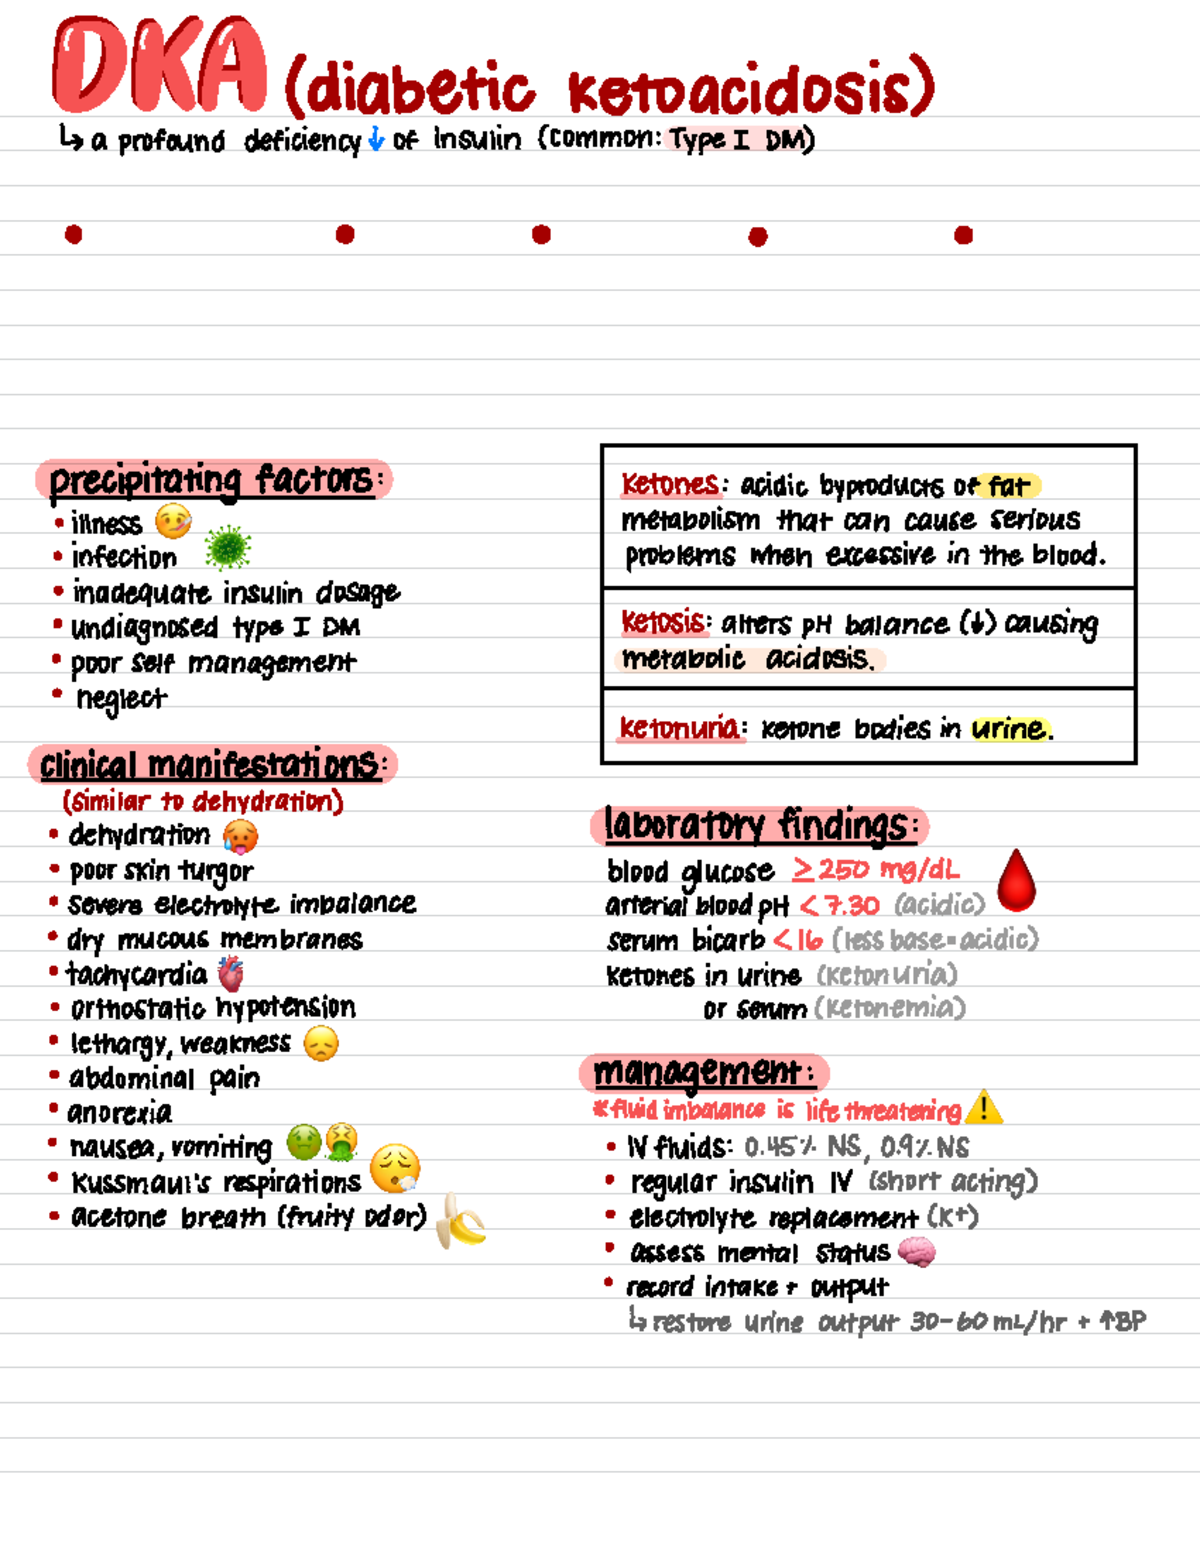 DKA (diabetic ketoacidosis)
↳ a profound deficiency ↓ of insulin (common: Type I DM)
precipitating factors:
• illness
• infection
• inadequate insulin dosage
• undiagnosed type I DM
• poor self management
• neglect
clinical manifestations:
(similar to dehydration)
• dehydration
• poor skin turgor
• severe electrolyte imbalance
• dry mucous membranes
• tachycardia
• orthostatic hypotension
• lethargy, weakness
• abdominal pain
• anorexia
• nausea, vomiting
• Kussmaul's respirations
• acetone breath (fruity odor)
Ketones: acidic byproducts of fat
metabolism that can cause serious
problems when excessive in the blood.
Ketosis: alters pH balance (↓) causing
metabolic acidosis.
Ketonuria: ketone bodies in urine.
laboratory findings:
blood glucose ≥250 mg/dL
arterial blood pH <7.30 (acidic)
serum bicarb <16 (less base=acidic)
ketones in urine (ketonuria)
or serum (ketonemia)
management:
*fluid imbalance is life threatening
• IV fluids: 0.45% NS, 0.9% NS
• regular insulin IV (short acting)
• electrolyte replacement (K+)
• assess mental status
• record intake + output
↳ restore urine output 30-60 mL/hr + ↑BP